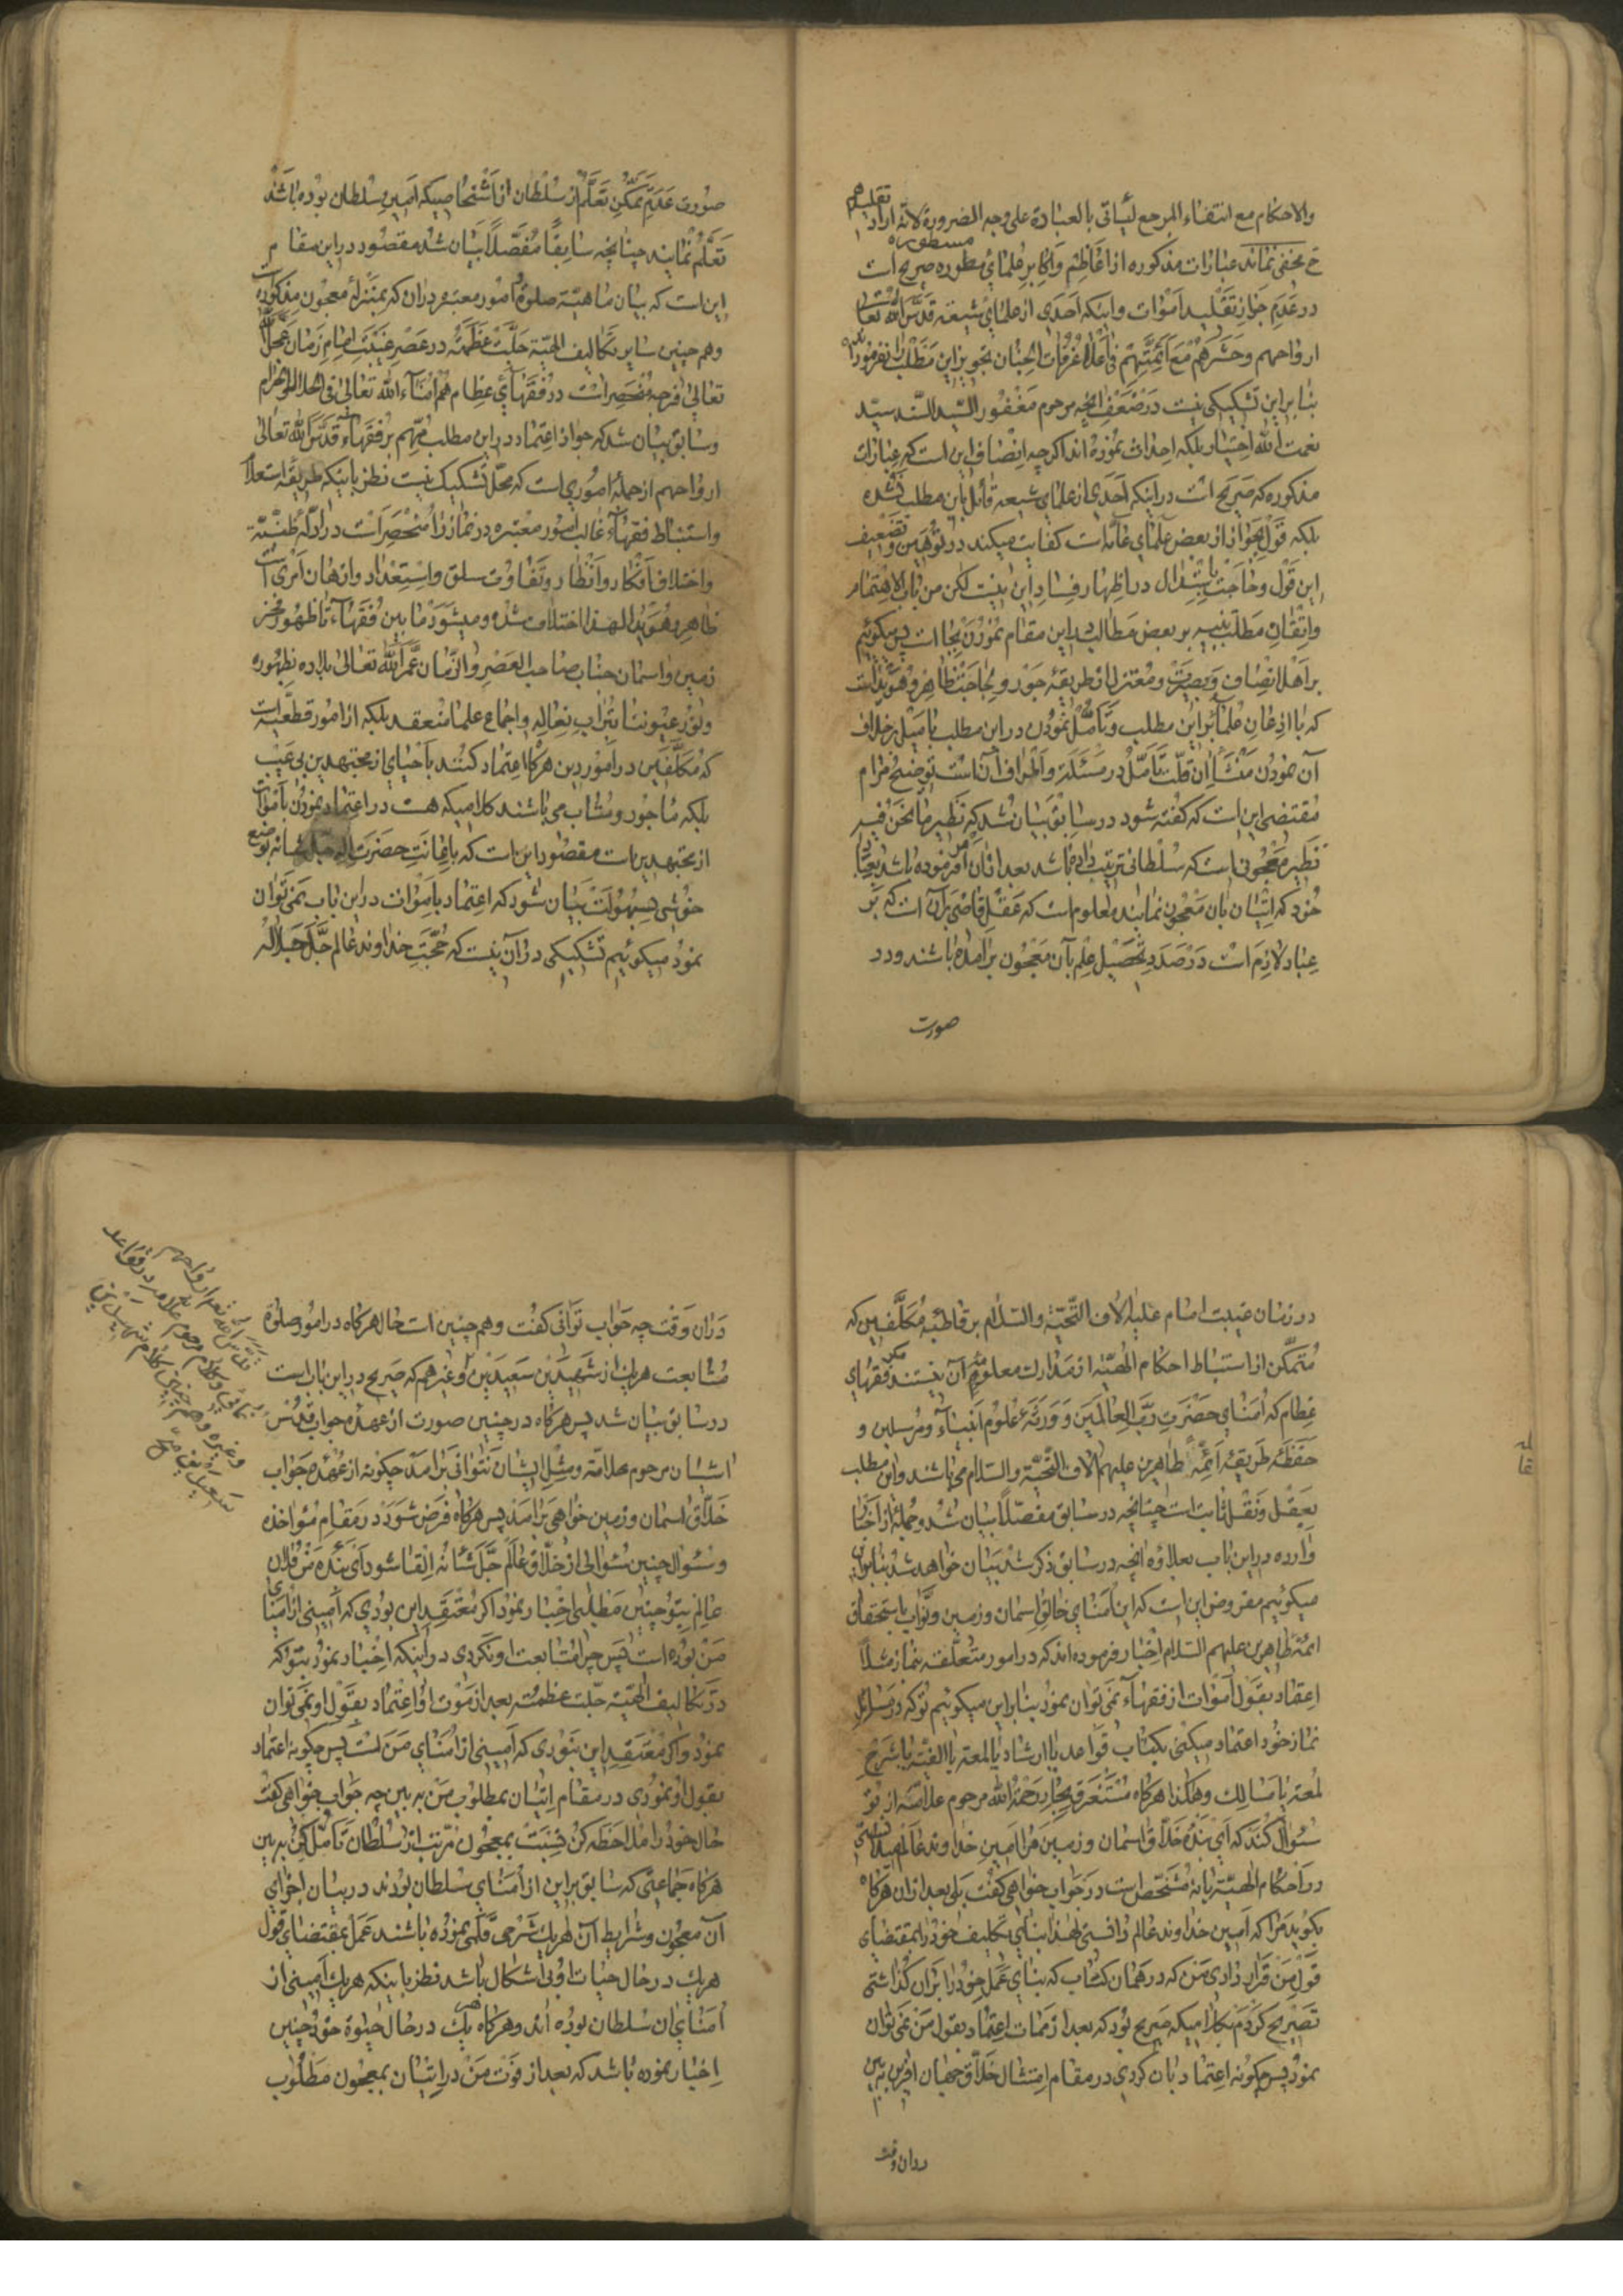 والاحكام مع انتفاء المرجع ليأتى بالعبادة على وجه الضرورة لانه اراد تقليدهم
ح مخفى نماند عبارات مذكوره از اعاظم واكابر علماى مسطوره صريح است
در عدم جواز تقليد اموات واينكه احدى از علماى شيعه قدس الله تعالى
ارواحهم وحشرهم مع ائمتهم فى اعلا غرفات الجنان تجويز اين مطلب را نفرموده اند
بنابراين تشكيكى نيست در ضعف آنچه مرحوم مغفور السيد السند سيد
نعمت الله اختيار بلكه احداث نموده اند اگر چه انصاف اين است كه عبارات
مذكوره كه صريح است در اينكه احدى از علماى شيعه قائل باين مطلب نشده
بلكه قول بجواز از بعض علماى عامه است كفايت ميكند در توهين وتضعيف
اين قول وحاجت باستدلال در اظهار فساد اين نيست لكن من باب الاهتمام
واتقان مطلب تنبيه بر بعض مطالب در اين مقام نمودن بجا است پس ميگوئيم
بر اهل انصاف وبصيرت ومعتزل از طريقه جور و لجاجت ظاهر وهويدا است
كه با اذعان علما بر اين مطلب وتأمل نمودن در اين مطلب يا ميل بر خلاف
آن نمودن منشأ آن قلت تأمل در مسئله واطراف آن است توضيح مرام
مقتضى اين است كه گفته شود در سابق بيان شد كه نظير ما نحن فيه
نظير معجونى است كه سلطانى ترتيب داده باشد بعد از آن امر نموده باشد رعايا
خود كه اتيان بان معجون نمايند معلوم است كه عقل قاضى بر آن است كه بر
عباد لازم است در صدد تحصيل علم بآن معجون برآمده باشند ودر
صورت
صورت عدم تمكن تعلم از سلطان از اشخاصيكه امين سلطان بوده باشند
تعلم نمايند چنانچه سابقا مفصلا بيان شد مقصود در اين مقام
اين است كه بيان ماهيت صلوة وامور معتبره در ان كه بمنزله معجون مذكوره است
وهم چنين ساير تكاليف الهيه جلت عظمته در عصر غيبت امام زمان عجل الله
تعالى فرجه منحصر است در فقهاى عظام هم امناء الله تعالى فى الحلال والحرام
وسابق بيان شد كه جواز اعتماد در اين مطلب مهم بر فقهاء قدس الله تعالى
ارواحهم از جمله امورى است كه محل تشكيك نيست نظر باينكه طريقه استعلام
واستنباط فقهاء غالب امور معتبره در نماز را منحصر است در ادله ظنيه
واختلاف افكار وانظار وتفاوت سلق واستعداد واذهان امرى است
ظاهر وهويدا لهذا اختلاف شده وميشود ما بين فقهاء تا ظهور فخر
زمين واسمان جناب صاحب العصر والزمان عمر الله تعالى بلاده بظهوره
ونور عيوننا بتراب نعاله واجماع علما منعقد بلكه از امور قطعيه است
كه مكلفين در امور دين هرگاه اعتماد كنند باحياى از مجتهدين بى عيب
بلكه مأجور ومثاب مى باشند كلاميكه هست در اعتماد نمودن باموات
از مجتهدين است مقصود اين است كه باعانت حضرت اله جل شانه نوع
خوشى بسهولت بيان شود كه اعتماد باموات در اين باب نمى توان
نمود ميگوئيم تشكيكى در آن نيست كه حجت خداوند عالم جل جلاله
در زمان غيبت امام عليه الاف التحية والسلام بر قاطبه مكلفين كه
متمكن از استنباط احكام الهيه از مدارك معلومه آن نيستند مگر فقهاى
عظام كه امناى حضرت رب العالمين وورثه علوم انبياء ومرسلين و
حفظه طريقه ائمه طاهرين عليهم الاف التحية والسلام مى باشند واين مطلب
بعقل ونقل ثابت است چنانچه در سابق مفصلا بيان شد وجمله از اخبار
وارده در اين باب بعلاوه انچه در سابق ذكر شد بيان خواهد شد بنابراين
ميگوئيم مفروض اين است كه اين امناى خالق اسمان وزمين ونواب باستحقاق
ائمه طاهرين عليهم السلام اخبار فرموده اند كه در امور متعلقه بنماز مثلا
اعتقاد بقول اموات از فقهاء نمى توان نمود بنابراين ميگوئيم تو كه در مسائل
نماز خود اعتماد ميكنى بكتاب قواعد يا ارشاد يا لمعه يا الفيه يا شرح
لمعه يا مسالك وهكذا هرگاه مستغرق بحار رحمة الله مرحوم علامه از تو
سئوال كند كه اى بنده خلاق اسمان وزمين مرا امين خداوند عالم ميدانستى
در احكام الهيه يا نه مشخص است در جواب خواهى گفت بلى بعد از ان هرگاه
بگويد مرا كه امين خداوند عالم دانستى لهذا بناى تكليف خود را بمقتضاى
قول من قرار دادى من كه در همان كتاب كه بناى عمل خود را بر آن گذاشتى
تصريح كردم بكلاميكه صريح بود كه بعد از ممات اعتماد بقول من نمى توان
نمود پس چگونه اعتماد بان كردى در مقام امتثال خلاق جهان افرين به بين
در ان وقت
در ان وقت چه جواب توانى گفت وهم چنين است حال هرگاه در امور صلوة
متابعت هريك از شهيدين سعيدين وغيرهم كه صريح در اين باب است
در سابق بيان شد پس هرگاه در چنين صورت از عهده جواب
ايشان مرحوم علامه ومثل ايشان نتوانى برآمد چگونه از عهده جواب
خلاق اسمان وزمين خواهى برآمد پس هرگاه فرض شود در مقام مؤاخذه
وسئوال چنين سئوالى از خلاق عالم جل شانه القا شود اى بنده من فلان
عالم بتو چنين مطلبى اخبار نمود اگر معتقد اين بودى كه امينى از امناى
من بوده است پس چرا متابعت او نكردى در اينكه اخبار نمود بتو كه
در تكاليف الهيه جلت عظمته بعد از موت او اعتماد بقول او نمى توان
نمود واگر معتقد اين نبودى كه امينى از امناى من است پس چگونه اعتماد
بقول او نمودى در مقام اتيان بمطلوب من به بين چه جواب خواهى گفت
حال خود را ملاحظه كن نسبت بمعجون مرتب از سلطان تأمل كن به بين
هرگاه جماعتى كه سابق براين از امناى سلطان بودند در بيان اجزاى
آن معجون وشرايط آن هريك شرحى قلمى نموده باشند عمل بمقتضاى قول
هريك در حال حيات او بى اشكال باشد نظر باينكه هريك امينى از
امناى ان سلطان بوده اند وهرگاه هر يك در حال حيوة خود چنين
اخبار نموده باشد كه بعد از فوت من در اتيان بمعجون مطلوب